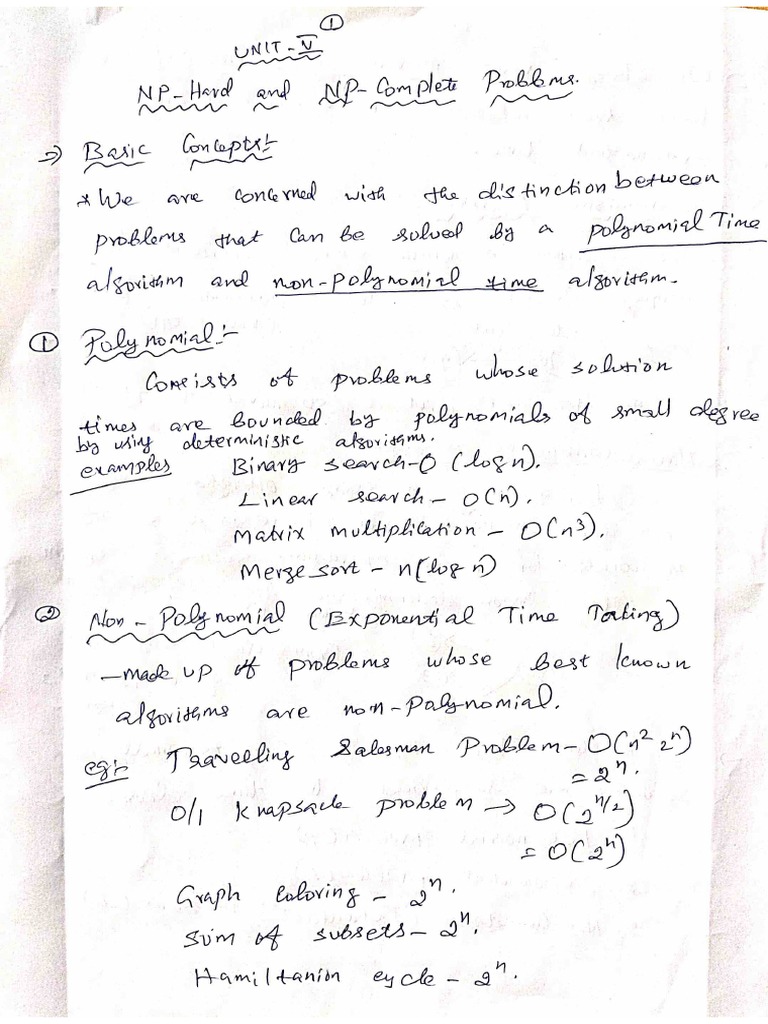 ①
UNIT-V
NP-Hard and NP-Complete Problems.
⇒ Basic Concepts:-
* We are concerned with the distinction between
problems that can be solved by a polynomial Time
algorithm and non-polynomial time algorithm.
① Polynomial:-
Consists of problems whose solution
times are bounded by polynomials of small degree
by using deterministic algorithms.
examples Binary search-O (log n).
Linear search - O(n).
Matrix multiplication - O(n³).
Merge sort - n(log n)
② Non-Polynomial (Exponential Time Taking)
-made up of problems whose best known
algorithms are non-polynomial.
eg:- Travelling Salesman Problem-O(n² 2ⁿ)
= 2ⁿ.
0/1 knapsack problem → O(2^n/2)
= O(2ⁿ)
Graph coloring - 2ⁿ.
Sum of subsets- 2ⁿ.
Hamiltanion cycle - 2ⁿ.